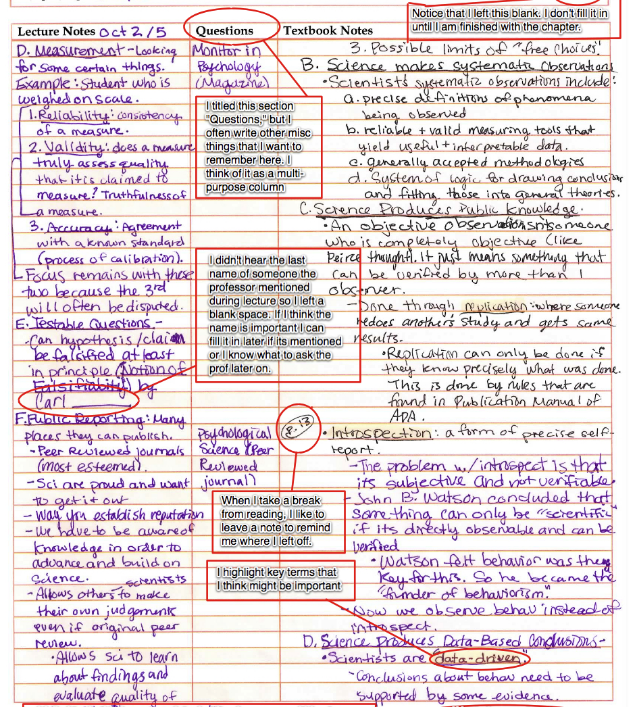 Notice that I left this blank. I don't fill it in
until I am finished with the chapter.
Lecture Notes Oct 2/5
D. Measurement - Looking
for some certain things.
Example: Student who is
weighed on scale.
1. Reliability: consistency
of a measure.
2. Validity: does a measure
truly assess quality
that it is claimed to
measure? Truthfulness of
a measure.
3. Accuracy: Agreement
with a known standard
(process of calibration).
Focus remains with these
two because the 3rd
will often be disputed.
E. Testable Questions -
- Can hypothesis/claim
be falsified at least
in principle (Notion of
Falsifiability) by
Carl
F. Public Reporting: Many
places they can publish.
- Peer Reviewed journals
(most esteemed).
- Sci are proud and want
to get it out
- Way you establish reputation
- We have to be aware of
knowledge in order to
advance and build on
science.
scientists
- Allows others to make
their own judgements
even if original peer
review.
• Allows sci to learn
about findings and
evaluate quality of
Questions
Monitor in
Psychology
(Magazine)
I titled this section
"Questions," but I
often write other misc
things that I want to
remember here. I
think of it as a multi-
purpose column
I didn't hear the last
name of someone the
professor mentioned
during lecture so I left a
blank space. If I think the
name is important I can
fill it in later if its mentioned
or I know what to ask the
prof later on.
8.13
Psychological
Science (Peer
Reviewed
journal)
When I take a break
from reading, I like to
leave a note to remind
me where I left off.
I highlight key terms that
I think might be important
Textbook Notes
3. Possible limits of "free choices".
B. Science makes systematic observations
• Scientists systematic observations include:
a. precise definitions of phenomena
being observed
b. reliable + valid measuring tools that
yield useful + interpretable data.
c. generally accepted methodologies
d. System of logic for drawing conclusions
and fitting those into general theories.
C. Science Produces Public Knowledge.
• An objective observation isn't someone
who is completely objective (like
Peirce thought). It just means something that
can be verified by more than 1
observer.
- Done through replication: where someone
redoes another's study and gets same
results.
• Replication can only be done if
they know precisely what was done.
This is done by rules that are
found in Publication Manual of
APA.
• Introspection: a form of precise self-
report.
- The problem w/introspect is that
its subjective and not verifiable
- John B. Watson concluded that
something can only be "scientific"
if its directly observable and can be
verified
• Watson felt behavior was the
key for this. So he became the
"funder of behaviorism".
- Now we observe behav instead of
introspect.
D. Science Produces Data-Based Conclusions -
• Scientists are "data-driven".
- Conclusions about behav need to be
supported by some evidence.